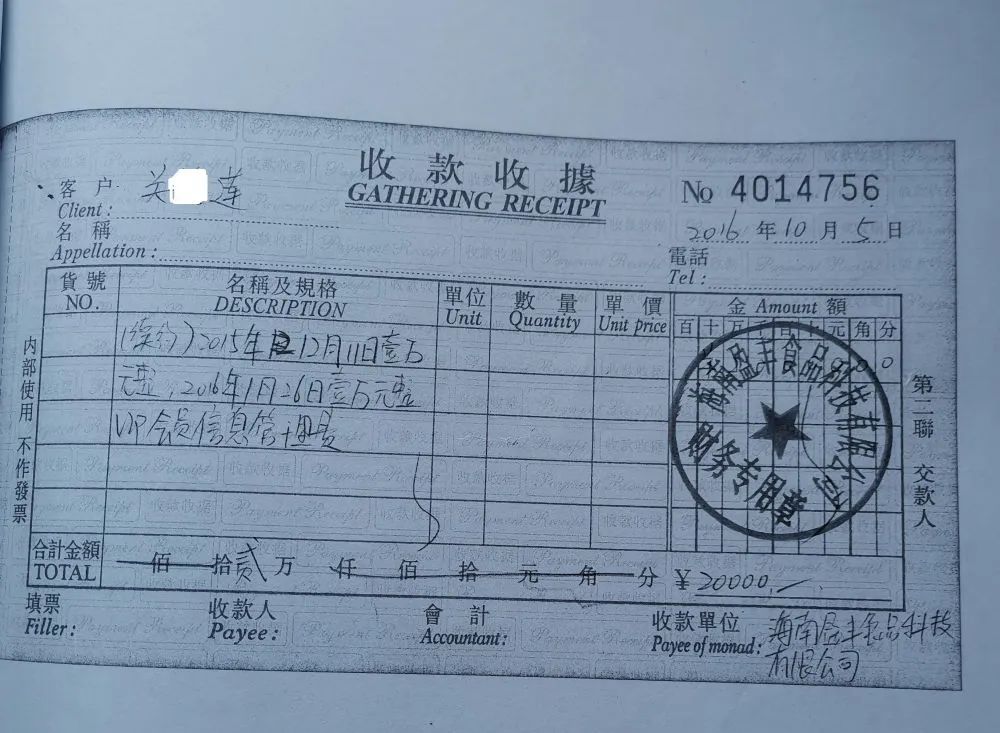 收款收據
GATHERING RECEIPT
№ 4014756
客户 关 莲
Client:
2016 年 10 月 5 日
名稱
Appellation:
電話
Tel:
貨號 名稱及規格 單位 數量 單價 金 Amount 額
NO. DESCRIPTION Unit Quantity Unit price 百十万千百十元角分
(续约)2015年12月11日壹万
元整,2016年1月26日壹万元整
VIP会员信息管
海南盈丰食品科技有限公司
财务专用章
合計金額 佰 拾 贰 万 仟 佰 拾 元 角 分 ¥20000.
TOTAL
填票 收款人 會計 收款單位 海南盈丰食品科技
Filler: Payee: Accountant: Payee of monad: 有限公司
内部使用 不作發票
第二聯 交款人